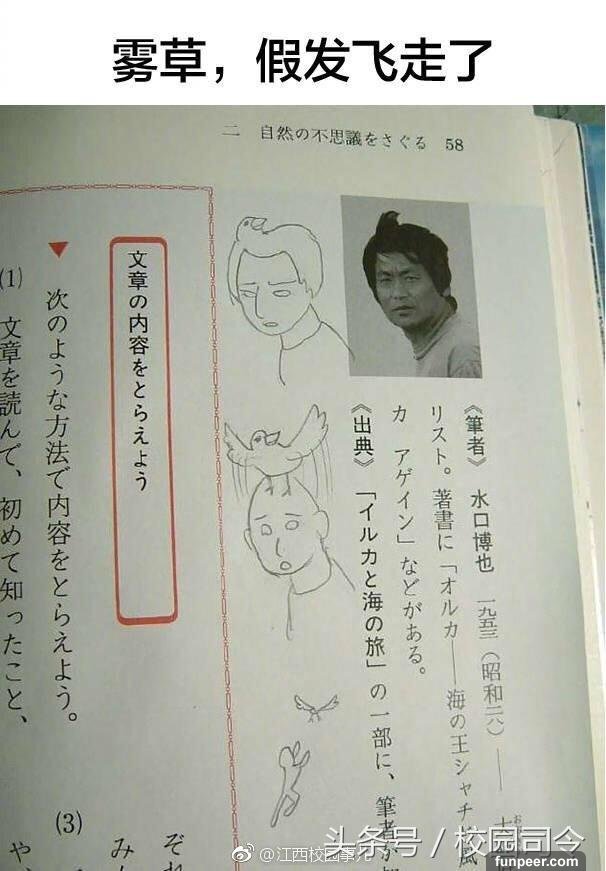 雾草，假发飞走了
二　自然の不思議をさぐる　58
《筆者》　水口博也　一九五三（昭和二八）——
リスト。著書に「オルカ——海の王シャチ
カ　アゲイン」などがある。
《出典》　「イルカと海の旅」の一部に、筆者が
文章の内容をとらえよう
▼　次のような方法で内容をとらえよう。
(1)　文章を読んで、初めて知ったこと、
(3)
ぞれ
み
や、
@江西校园事儿
头条号／校园司令
funpeer.com